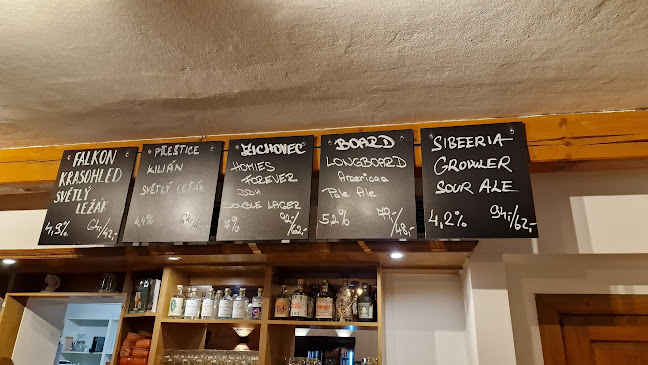 FALKON
KRASOHLED
SVĚTLÝ
LEŽÁK
4,9% 64,-/42,-
PŘEŠTICE
KILIÁN
SVĚTLÝ LEŽÁK
4,4%
ZICHOVEC
HOMIES
FOREVER
DOUBLE LAGER
7% 92,-/62,-
BOARD
LONGBOARD
American
Pale Ale
5,2% 79,-/48,-
SIBEERIA
GROWLER
SOUR ALE
4,2% 94,-/62,-